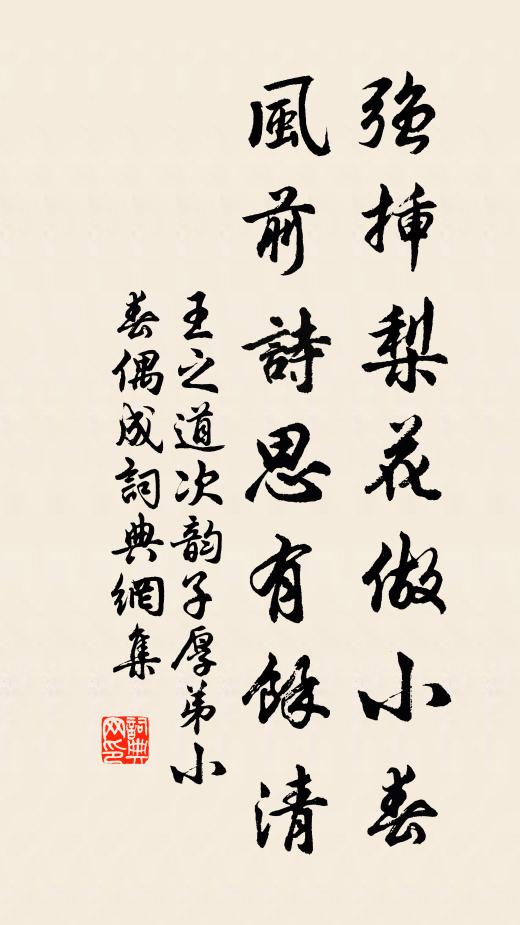 強挿梨花做小春
風前詩思有餘清
王之道次韵子厚弟小
春偶成詞典網集
詞典网印